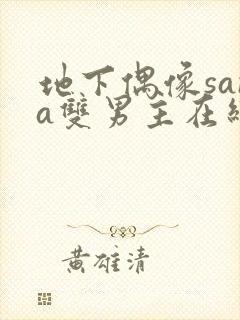 地下偶像sa
a雙男主在
黃雄清